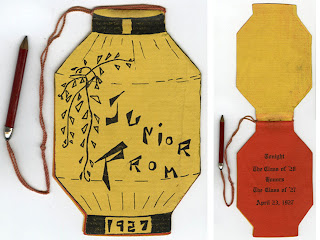 Junior
Prom
1927
Tonight
The Class of '28
Honors
The Class of '27
April 23, 1927